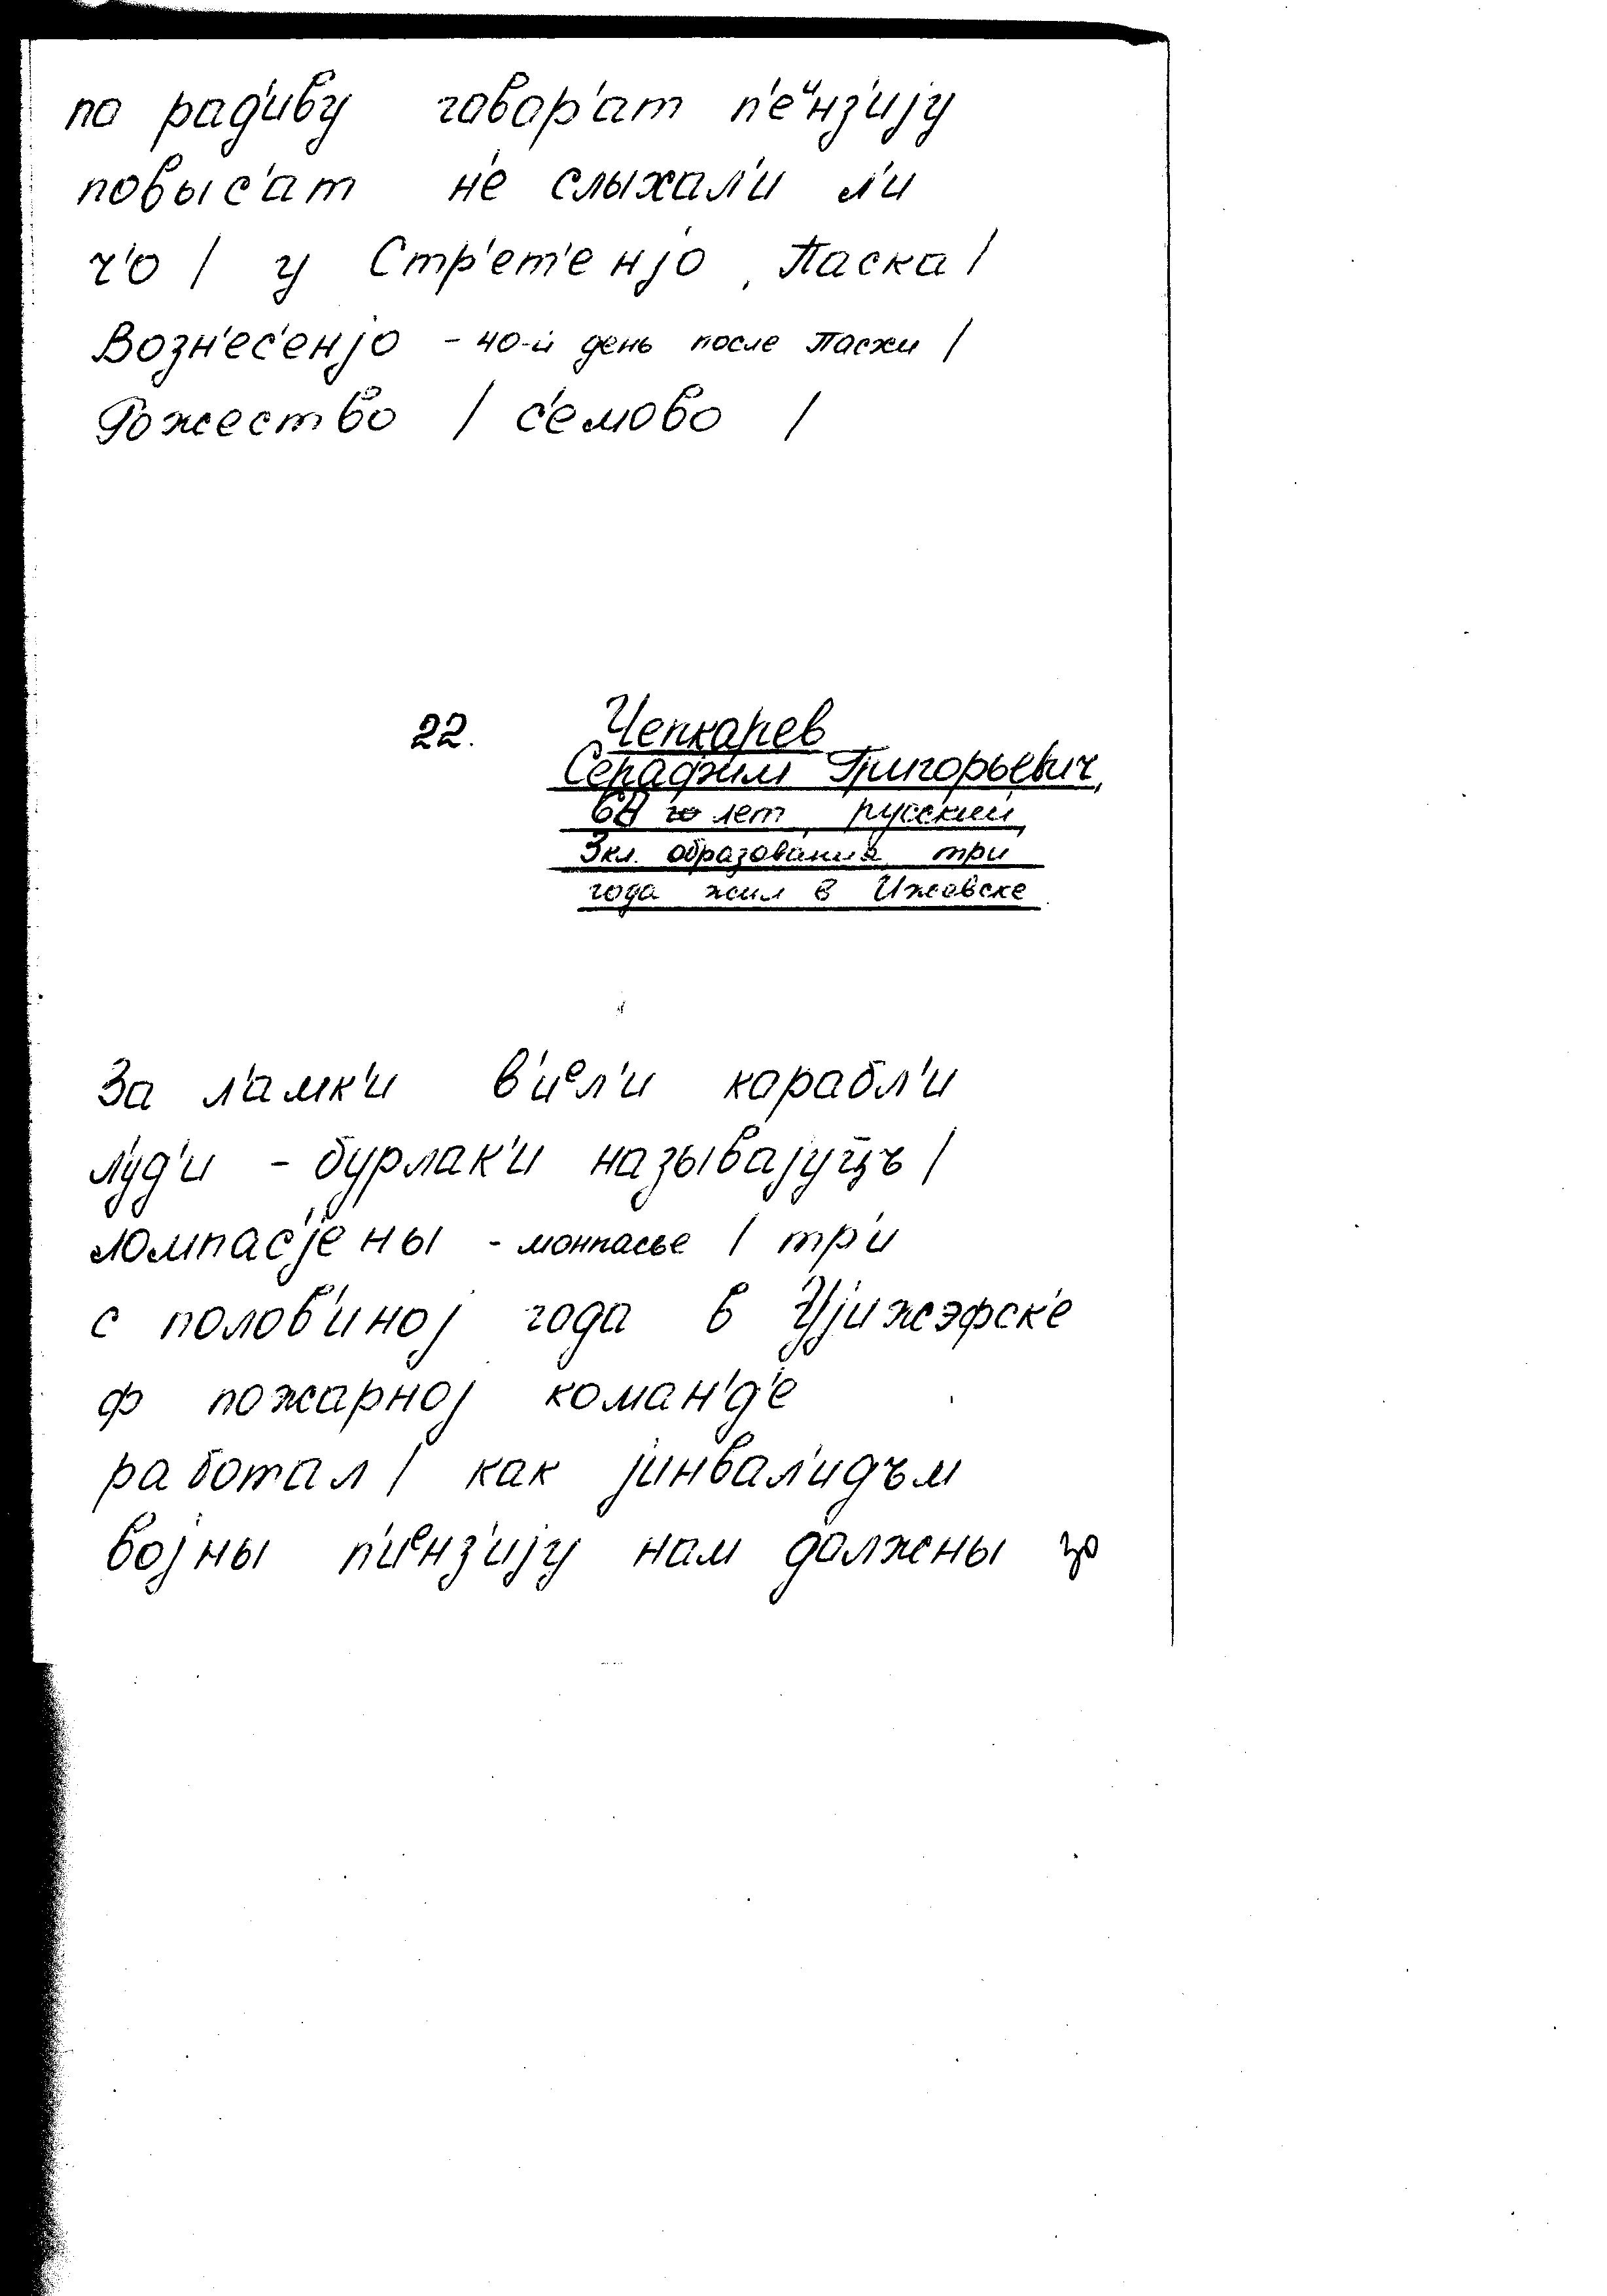 по рад'иву говор'ат п'еⁿнз'ију
повыс'ат н'е слыхал'и л'и
ч'о / у Стр'ет'енјо, Паска /
Возн'ес'енјо - 40-й день после Пасхи /
Рожество / с'емово /
22. Чепкарев
Серафим Григорьевич,
лет, русский,
3 кл. образования, три
года жил в Ижевске.
За л'амк'и в'иᵉл'и карабл'и
л'уд'и - бурлак'и называјуцъ /
ломпас'јены - монпасье / тр'и
с полов'иној года в Ујижэфск'е
ф пожарној коман'д'е
работал / как јинвал'идъм
војны п'иᵉнз'ију нам должны